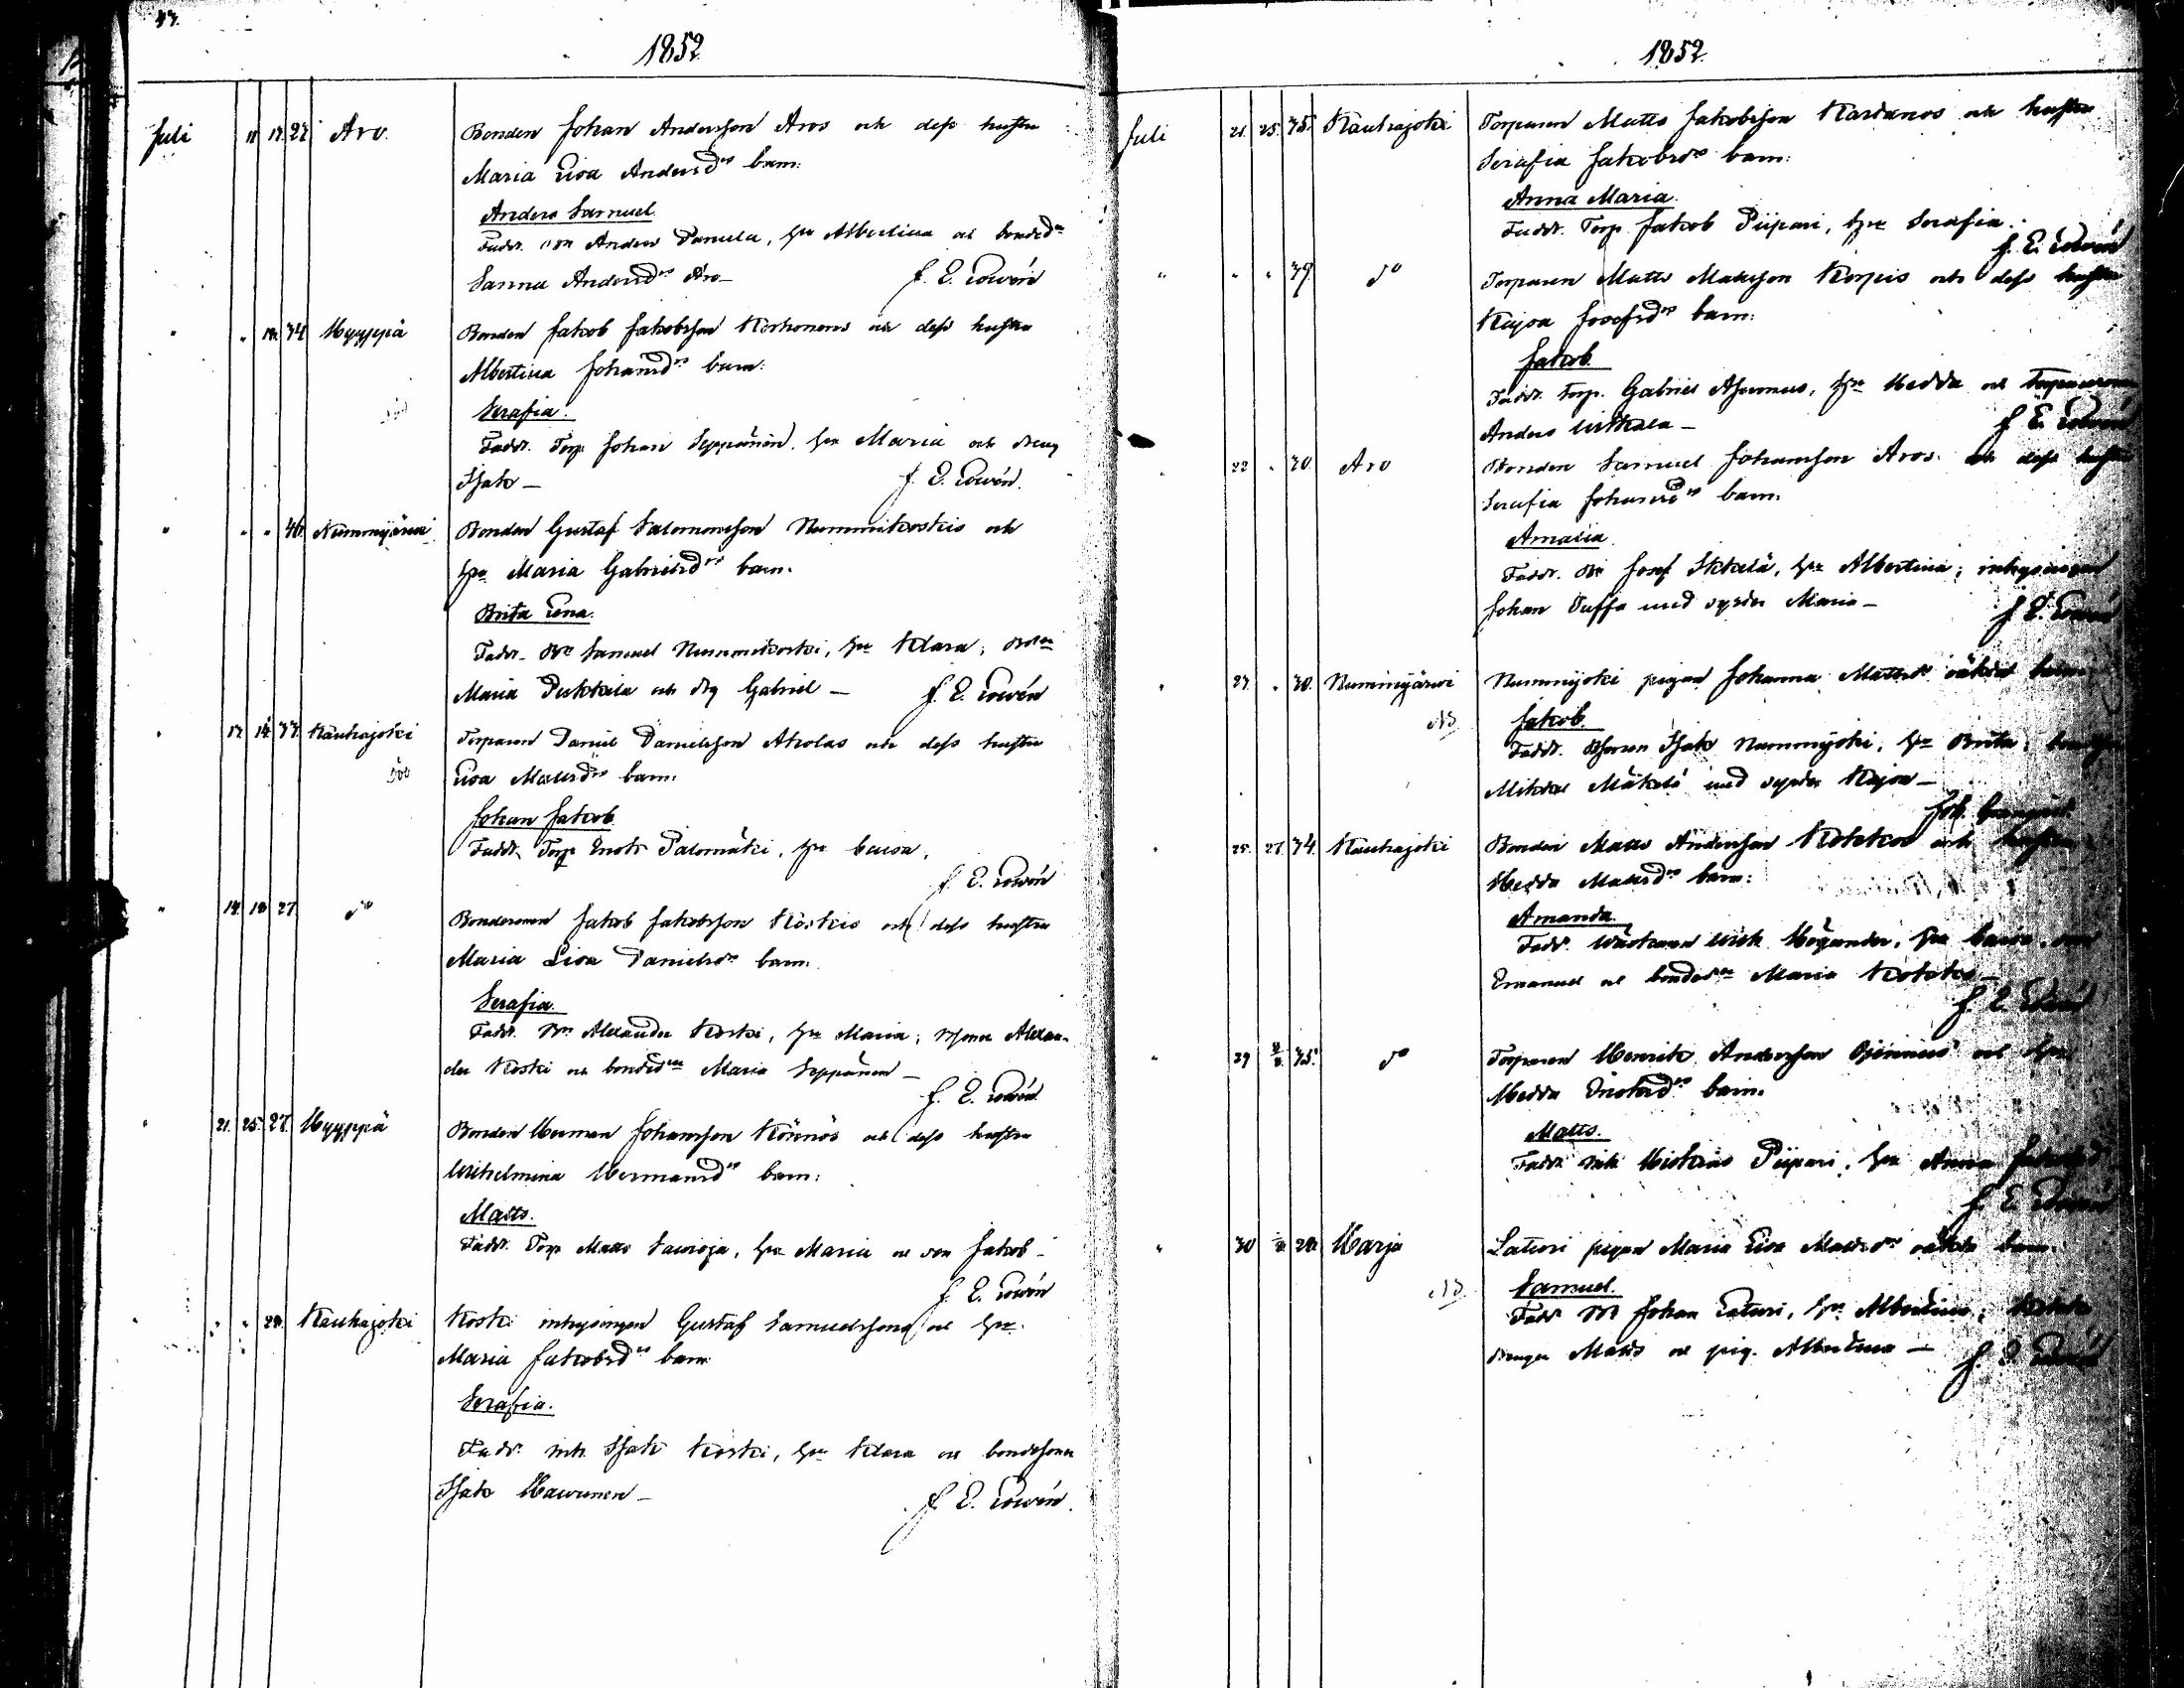 47.
1852.
Juli 11 17. 27 Aro. Bonden Johan Andersson Aros och dess hustru
Maria Lisa Andersdr barn:
Anders Samuel.
Faddr. Anders Panula, hu Albertina och bondedr
Sanna Andersdr Aro— J. E. Lowén
" " 18. 34 Hyyppä Bonden Jakob Jakobsson Korhonens och dess hustru
Albertina Johansdr barn:
Serafia.
Faddr. Torp. Johan Seppänen, hu Maria och dreng
Isak— J. E. Lowén.
" " " 46. Nummijärwi Bonden Gustaf Salomonsson Nummikoskis och
hu Maria Gabrielsdr barn.
Brita Lena.
Faddr. Bn Samuel Nummikoski, hu Klara;
Maria Pukkila och drg Gabriel— J. E. Lowén
" 12. 14. 37. Kauhajoki Torparen Daniel Danielsson Aholas och dess hustru
död Lisa Mattsdr barn:
Johan Jakob.
Faddr. Torp. Enok Palomäki, hu Caisa.
J. E. Lowén
" 14. 18. 27. do Bondesonen Jakob Jakobsson Koskis och dess hustru
Maria Lisa Danielsdr barn:
Serafia.
Faddr. Bn Alexander Koski, hu Maria; Alexan-
der Koski och bondedr Maria Seppänen—
J. E. Lowén.
" 21. 25. 27. Hyyppä Bonden Herman Johansson Könnös och dess hustru
Wilhelmina Hermansdr barn:
Matts.
Faddr. Torp Matts Sawioja, hu Maria och son Jakob—
J. E. Lowén
" " " 29. Kauhajoki Koski inhysingen Gustaf Samuelssons och hu
Maria Jakobsdr barn:
Serafia.
Faddr. inh. Isak Koski, hu Klara och bondesonen
Isak Hawunen— J. E. Lowén.
1852.
Juli 21. 25. 35. Kauhajoki Torparen Matts Jakobsson Kardanos och hustru
Serafia Jakobsdr barn:
Anna Maria.
Faddr. Torp. Jakob Piipari, hu Serafia.
J. E. Lowén
" " " 39. do Torparen Matts Mattsson Korpis och dess hustru
Kajsa Josefsdr barn:
Jakob.
Faddr. torp. Gabriel, hu Hedda och
Anders— J. E. Lowén
" 22 " 30. Aro Bonden Samuel Johansson Aros och dess hustru
Serafia Johansdr barn:
Amalia.
Faddr. Bn Josef Ikkelä, hu Albertina; inhysingen
Johan Tuffa med syster Maria—
J. E. Lowén
" 23. " 30. Nummijärwi Nummijoki pigan Johanna Mattsdr oäkta barn:
Jakob.
Faddr. Isak Nummijoki, hu Brita;
Mikkel Mäkelä med syster Kajsa—
" 25. 27. 34. Kauhajoki Bonden Matts Andersson Kokkos och hustru
Hedda Mattsdr barn:
Amanda.
Faddr. hu Caisa, son
Emanuel och bondedr Maria Kokko—
J. E. Lowén
" 29 35. do Torparen Henrik Andersson och hu
Hedda Enoksdr barn:
Matts.
Faddr. inh. Piipari, hu Anna
J. E. Lowén
" 30 29. Harja Laturi pigan Maria Lisa Mattsdr oäkta barn:
Samuel.
Faddr. Bn Johan Laturi, hu Albertina;
drengen Matts och pig. Albertina—
J. E. Lowén